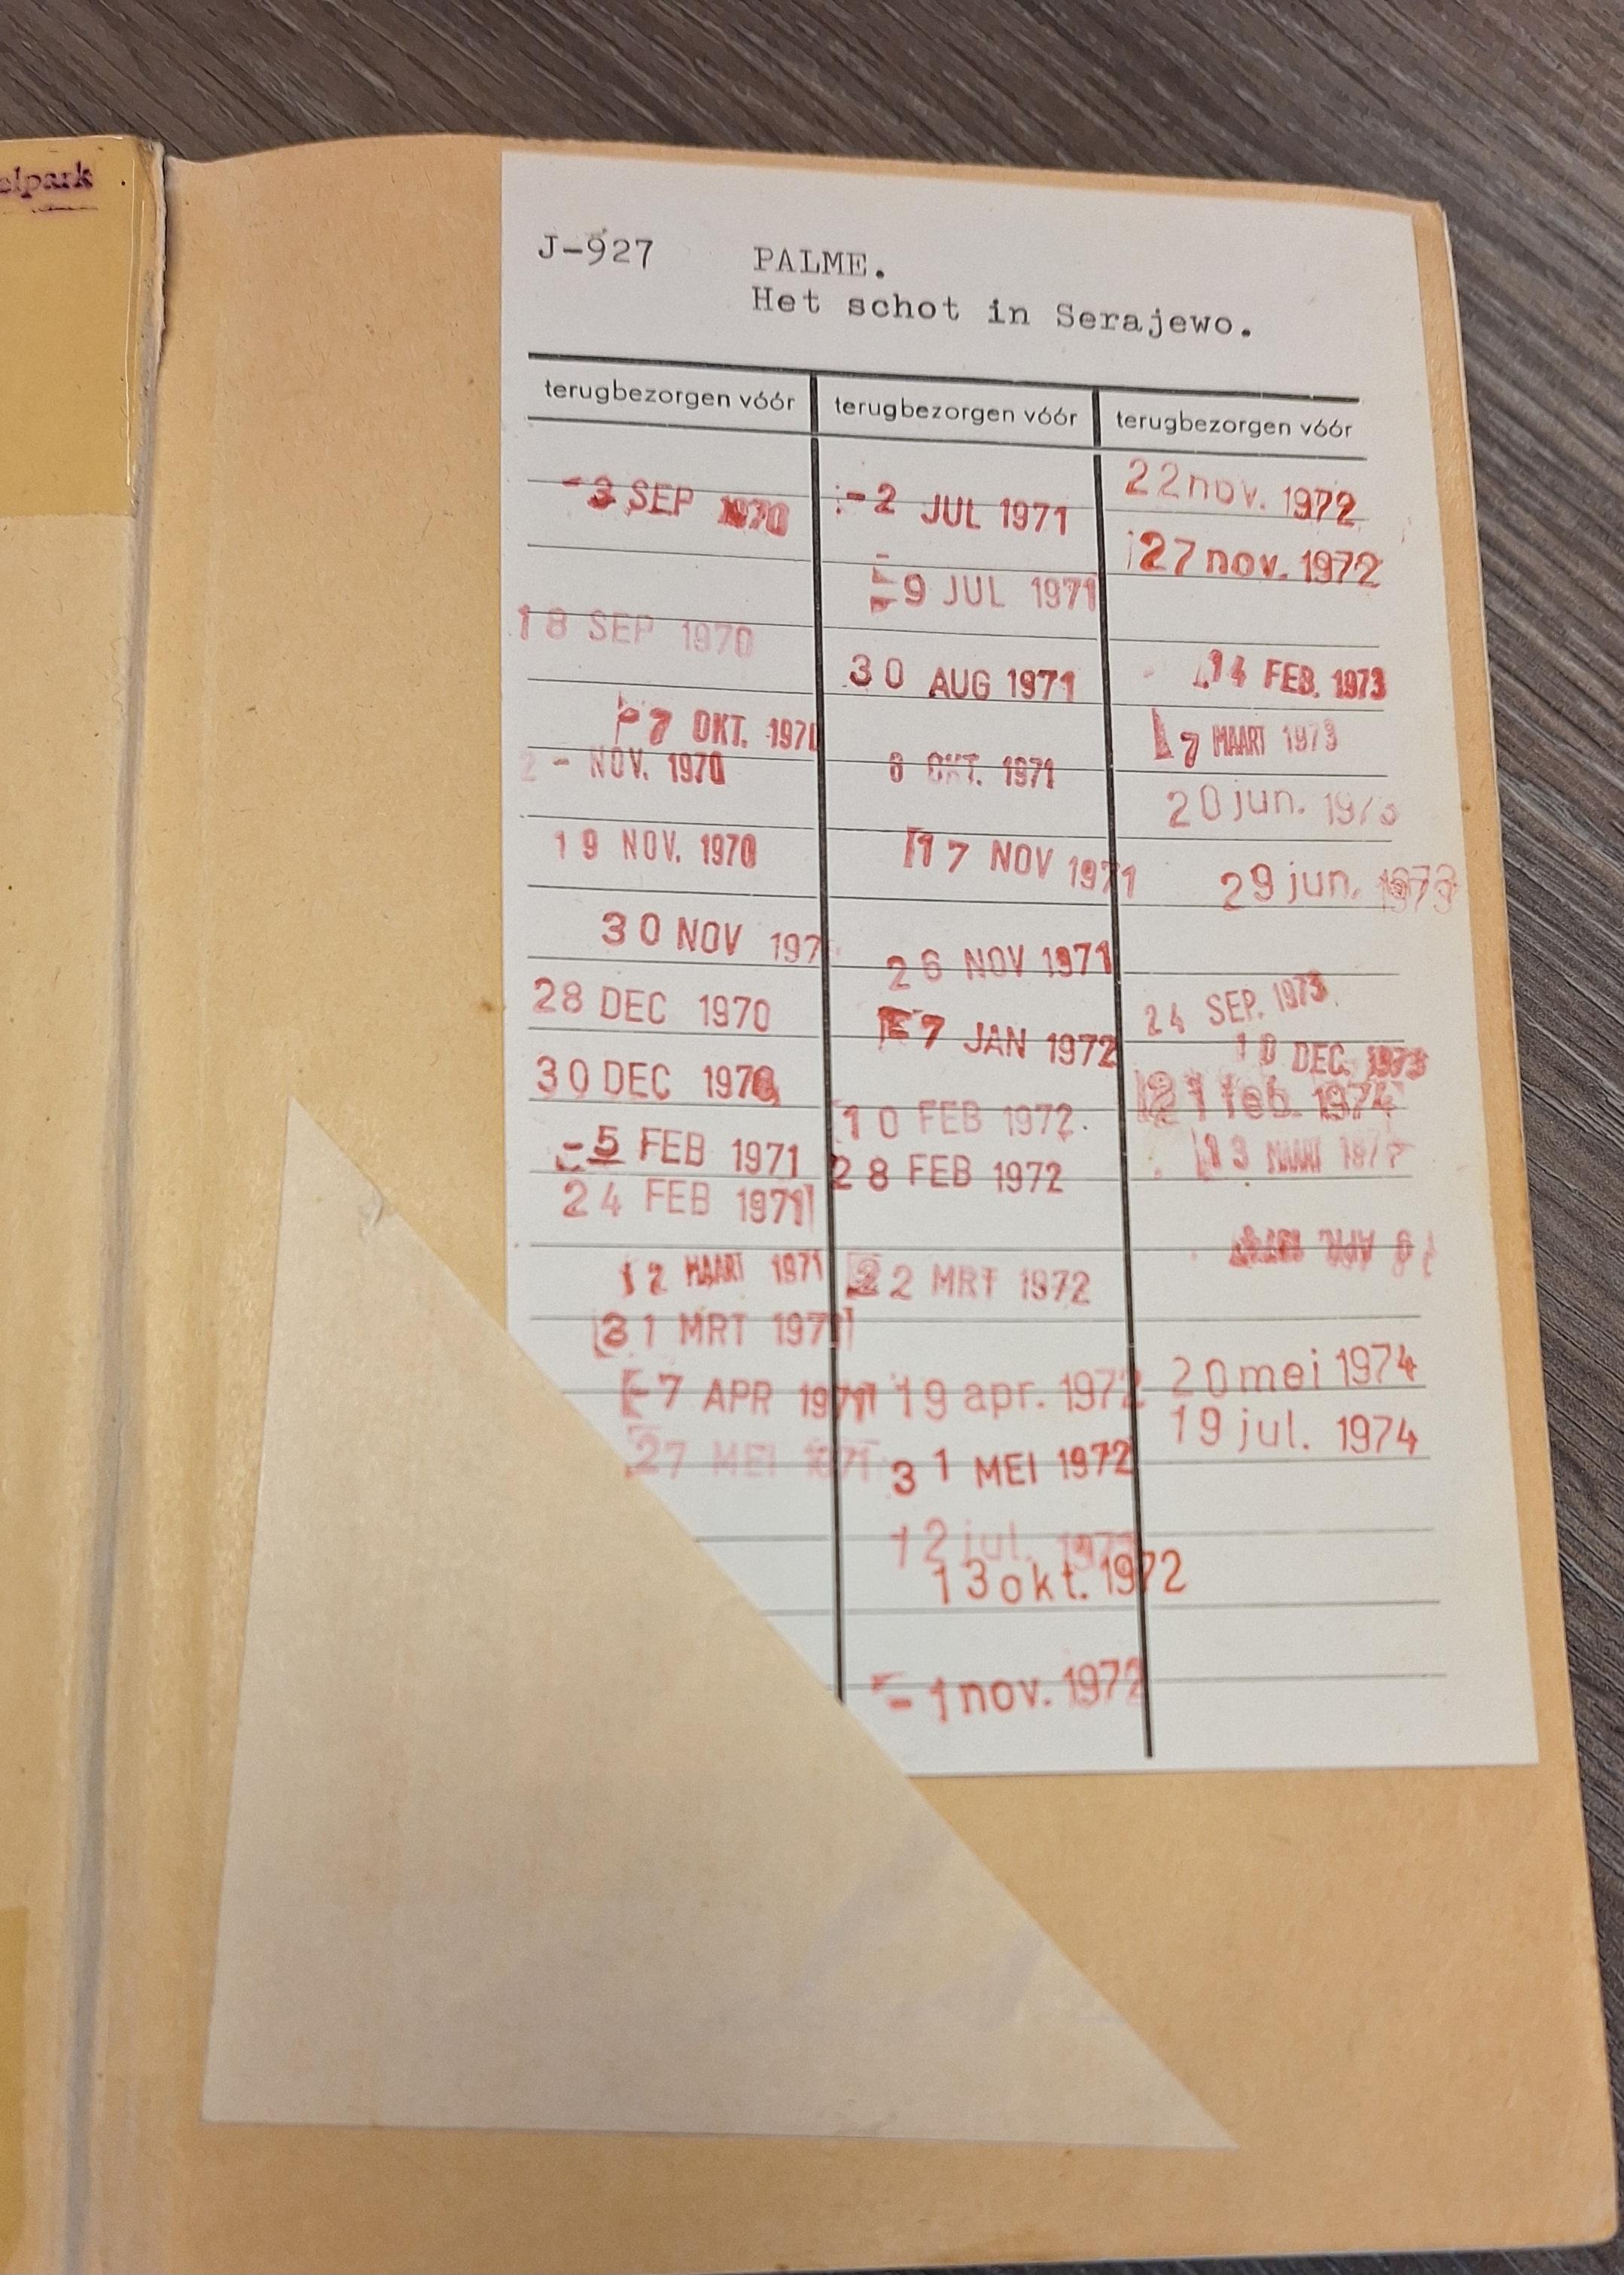 elpark
J-927 PALME.
Het schot in Serajewo.
terugbezorgen vóór
-3 SEP 1970
18 SEP 1970
-7 OKT. 197
2 - NOV. 1970
19 NOV. 1970
30 NOV 197
28 DEC 1970
30 DEC 1970
-5 FEB 1971
24 FEB 1971
12 MAART 1971
31 MRT 1971
-7 APR 1971
27 MEI 1971
terugbezorgen vóór
-2 JUL 1971
-9 JUL 1971
30 AUG 1971
OKT. 1971
17 NOV 1971
26 NOV 1971
-7 JAN 1972
10 FEB 1972.
28 FEB 1972
22 MRT 1972
19 apr. 1972
31 MEI 1972
12 jul. 1972
13 okt. 1972
- 1 nov. 1972
terugbezorgen vóór
22 nov. 1972
27 nov. 1972
14 FEB. 1973
7 MAART 1973
20 jun. 1973
29 jun. 1973
24 SEP. 1973
10 DEC. 1973
21 feb. 1974
13 MAART 197
APR.
20 mei 1974
19 jul. 1974